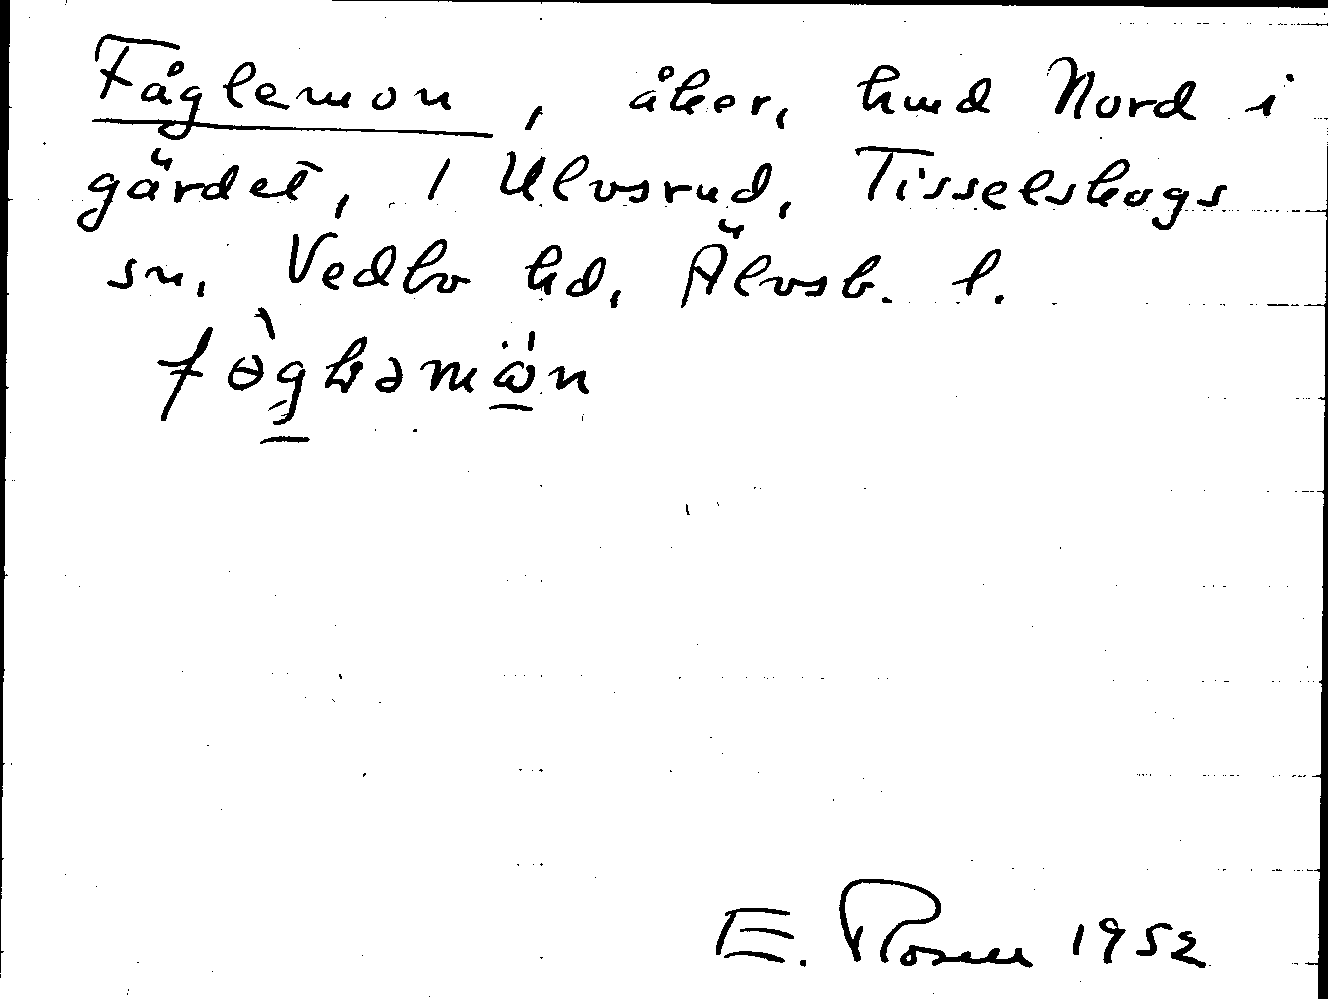 Fåglemon, åker, hmd Nord i
gärdet, 1 Ulvsrud, Tisselskogs
sn, Vedbo hd, Älvsb. l.
E. Rosell 1952